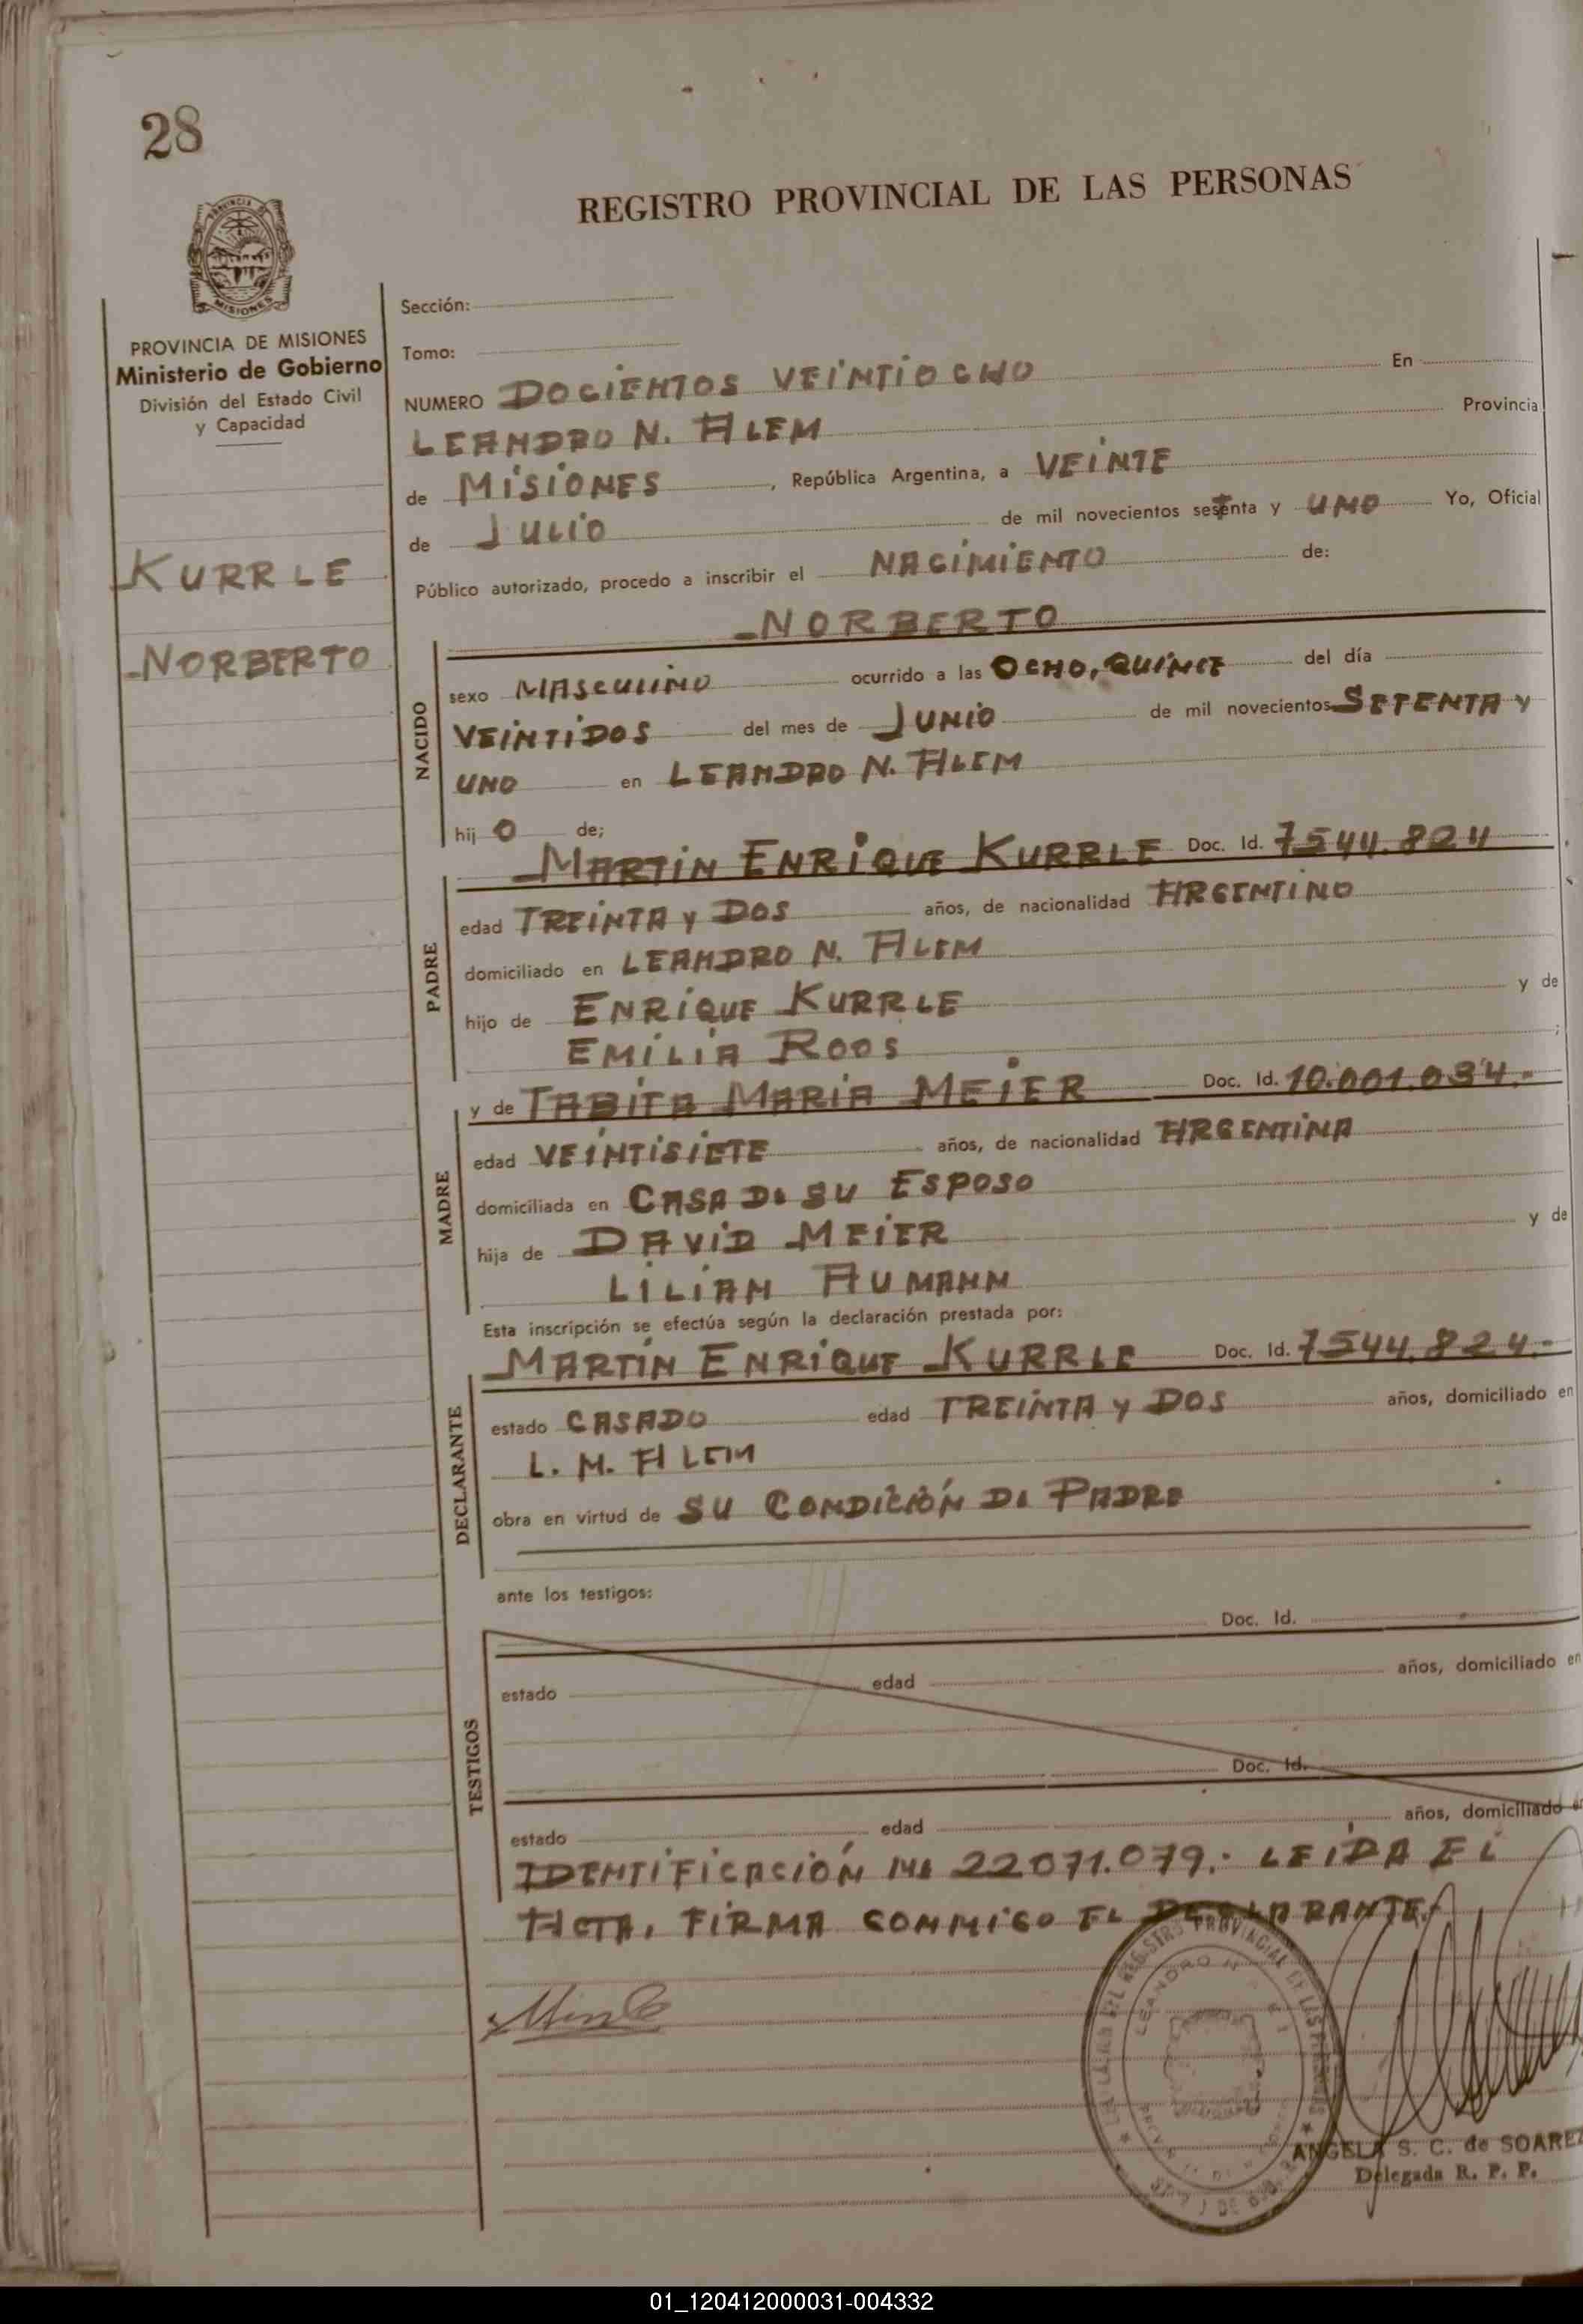 28
REGISTRO PROVINCIAL DE LAS PERSONAS
MISIONES
PROVINCIA DE MISIONES
Ministerio de Gobierno
División del Estado Civil
y Capacidad
KURRLE
NORBERTO
Sección:
Tomo:
NUMERO DOCIENTOS VEINTIOCHO En
LEANDRO N. ALEM Provincia
de MISIONES, República Argentina, a VEINTE
de JULIO de mil novecientos setenta y UNO Yo, Oficial
Público autorizado, procedo a inscribir el NACIMIENTO de:
NORBERTO
NACIDO
sexo MASCULINO ocurrido a las OCHO, QUINCE del día
VEINTIDOS del mes de JUNIO de mil novecientos SETENTA Y
UNO en LEANDRO N. ALEM
hijo de;
PADRE
MARTIN ENRIQUE KURRLE Doc. Id. 7544.824
edad TREINTA Y DOS años, de nacionalidad ARGENTINO
domiciliado en LEANDRO N. ALEM
hijo de ENRIQUE KURRLE y de
EMILIA ROOS ;
MADRE
y de TABITA MARIA MEIER Doc. Id. 10.001.034.-
edad VEINTISIETE años, de nacionalidad ARGENTINA
domiciliada en CASA DE SU ESPOSO
hija de DAVID MEIER y de
LILIAN AUMANN
Esta inscripción se efectúa según la declaración prestada por:
DECLARANTE
MARTIN ENRIQUE KURRLE Doc. Id. 7544.824.-
estado CASADO edad TREINTA Y DOS años, domiciliado en
L. N. ALEM
obra en virtud de SU CONDICIÓN DE PADRE
ante los testigos:
TESTIGOS
Doc. Id.
estado edad años, domiciliado en
Doc. Id.
estado edad años, domiciliado en
IDENTIFICACIÓN Nº 22071.079.- LEIDA EL
ACTA, FIRMA CONMIGO EL DECLARANTE.-
REGISTRO PROVINCIAL DE LAS PERSONAS
LEANDRO N.
ANGELA S. C. de SOAREZ
Delegada R. P. P.
01_120412000031-004332